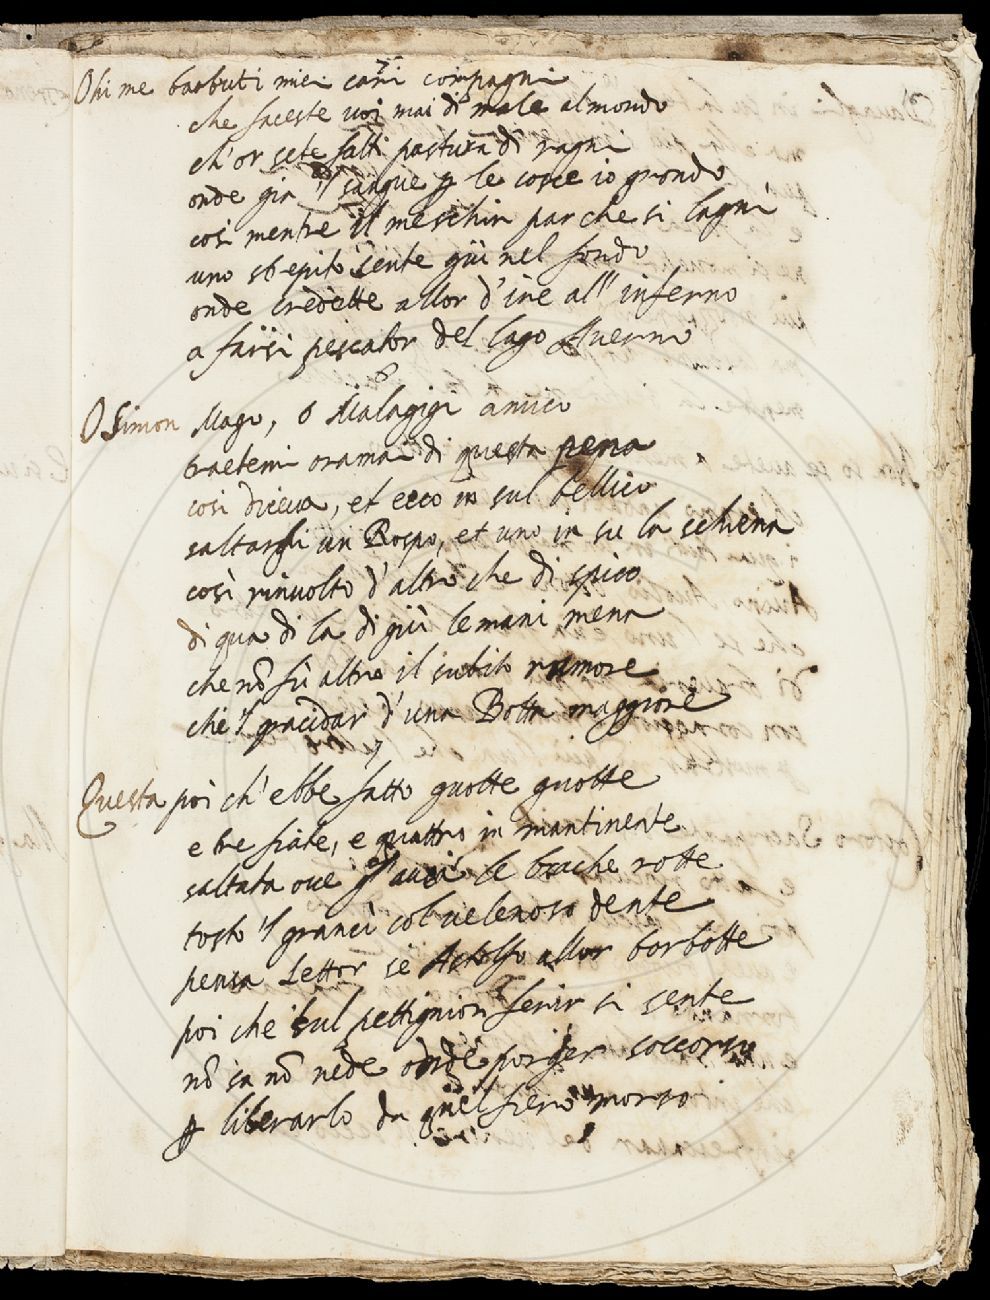 Ohi me barbuti miei cari compagni
che faceste voi mai di male al mondo
ch'or sete fatti pastura di ragni
onde gia il sangue ꝑ le cosce io grondo
cosi mentre il meschin par che si lagni
uno strepito sente giù nel fondo
onde credette allor d'ire all'inferno
a farsi pescator del lago Averno
O Simon Mago, o Malagigi amico
traetemi oramai di questa pena
cosi diceva, et ecco in sul bellico
saltargli un Rospo, et uno in su la schiena
così rinvolto d'altro che di spico
di qua di la di giù le mani mena
che nō fù altro il subito rumore
che'l gracidar d'una Botta maggiore
Questa poi ch'ebbe fatto guotte guotte
e tre fiate, e quattro in mantinente
saltata ove le brache rotte
tosto 'l grancì col velenoso dente
pensa Lettor se Astolfo allor borbotte
poi che sul pettignion ferir si sente
nō sa nō vede onde porger soccorso
ꝑ liberarlo da quel fiero morso